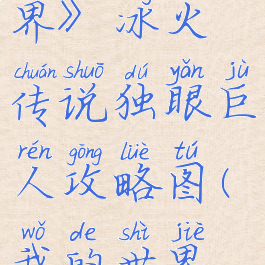 界》冰火
chuán shuō dú yǎn jù
传说独眼巨
rén gōng lüè tú
人攻略图(
wǒ de shì jiè
我的世界